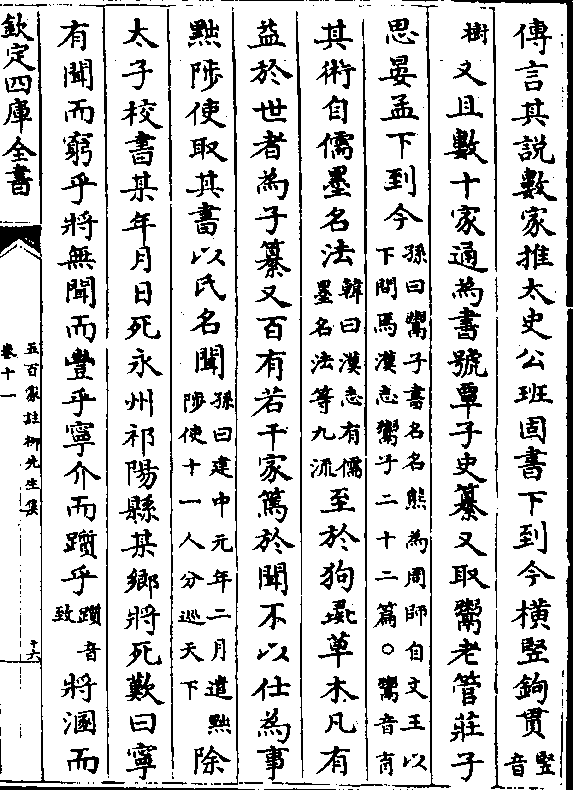 傳言其說數家推太史公班固書下到今橫竪鉤貫竪音
樹又且數十家通為書號覃子史纂又取鬻老管莊子
思晏孟下到今孫曰鬻子書名名熊為周師自文王以下問焉漢志鬻子二十二篇○鬻音育
其術自儒墨名法韓曰漢志有儒墨名法等九流至於狗彘草木凡有
益於世者為子纂又百有若干家篤於聞不以仕為事
黜陟使取其書以氏名聞孫曰建中元年二月遣黜陟使十一人分巡天下除
太子校書某年月日死永州祁陽縣某鄉將死歎曰寧
有聞而窮乎將無聞而豐乎寧介而躓乎躓音致將溷而
欽定四庫全書
五百家註柳先生集
卷十一
十六